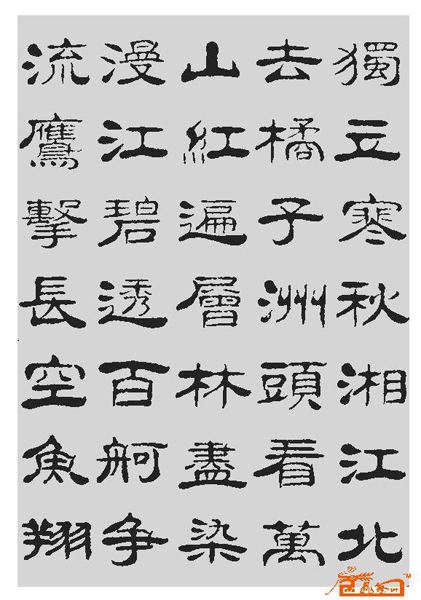 獨立寒秋湘江北
去橘子洲頭看萬
山紅遍層林盡染
漫江碧透百舸争
流鷹擊長空魚翔